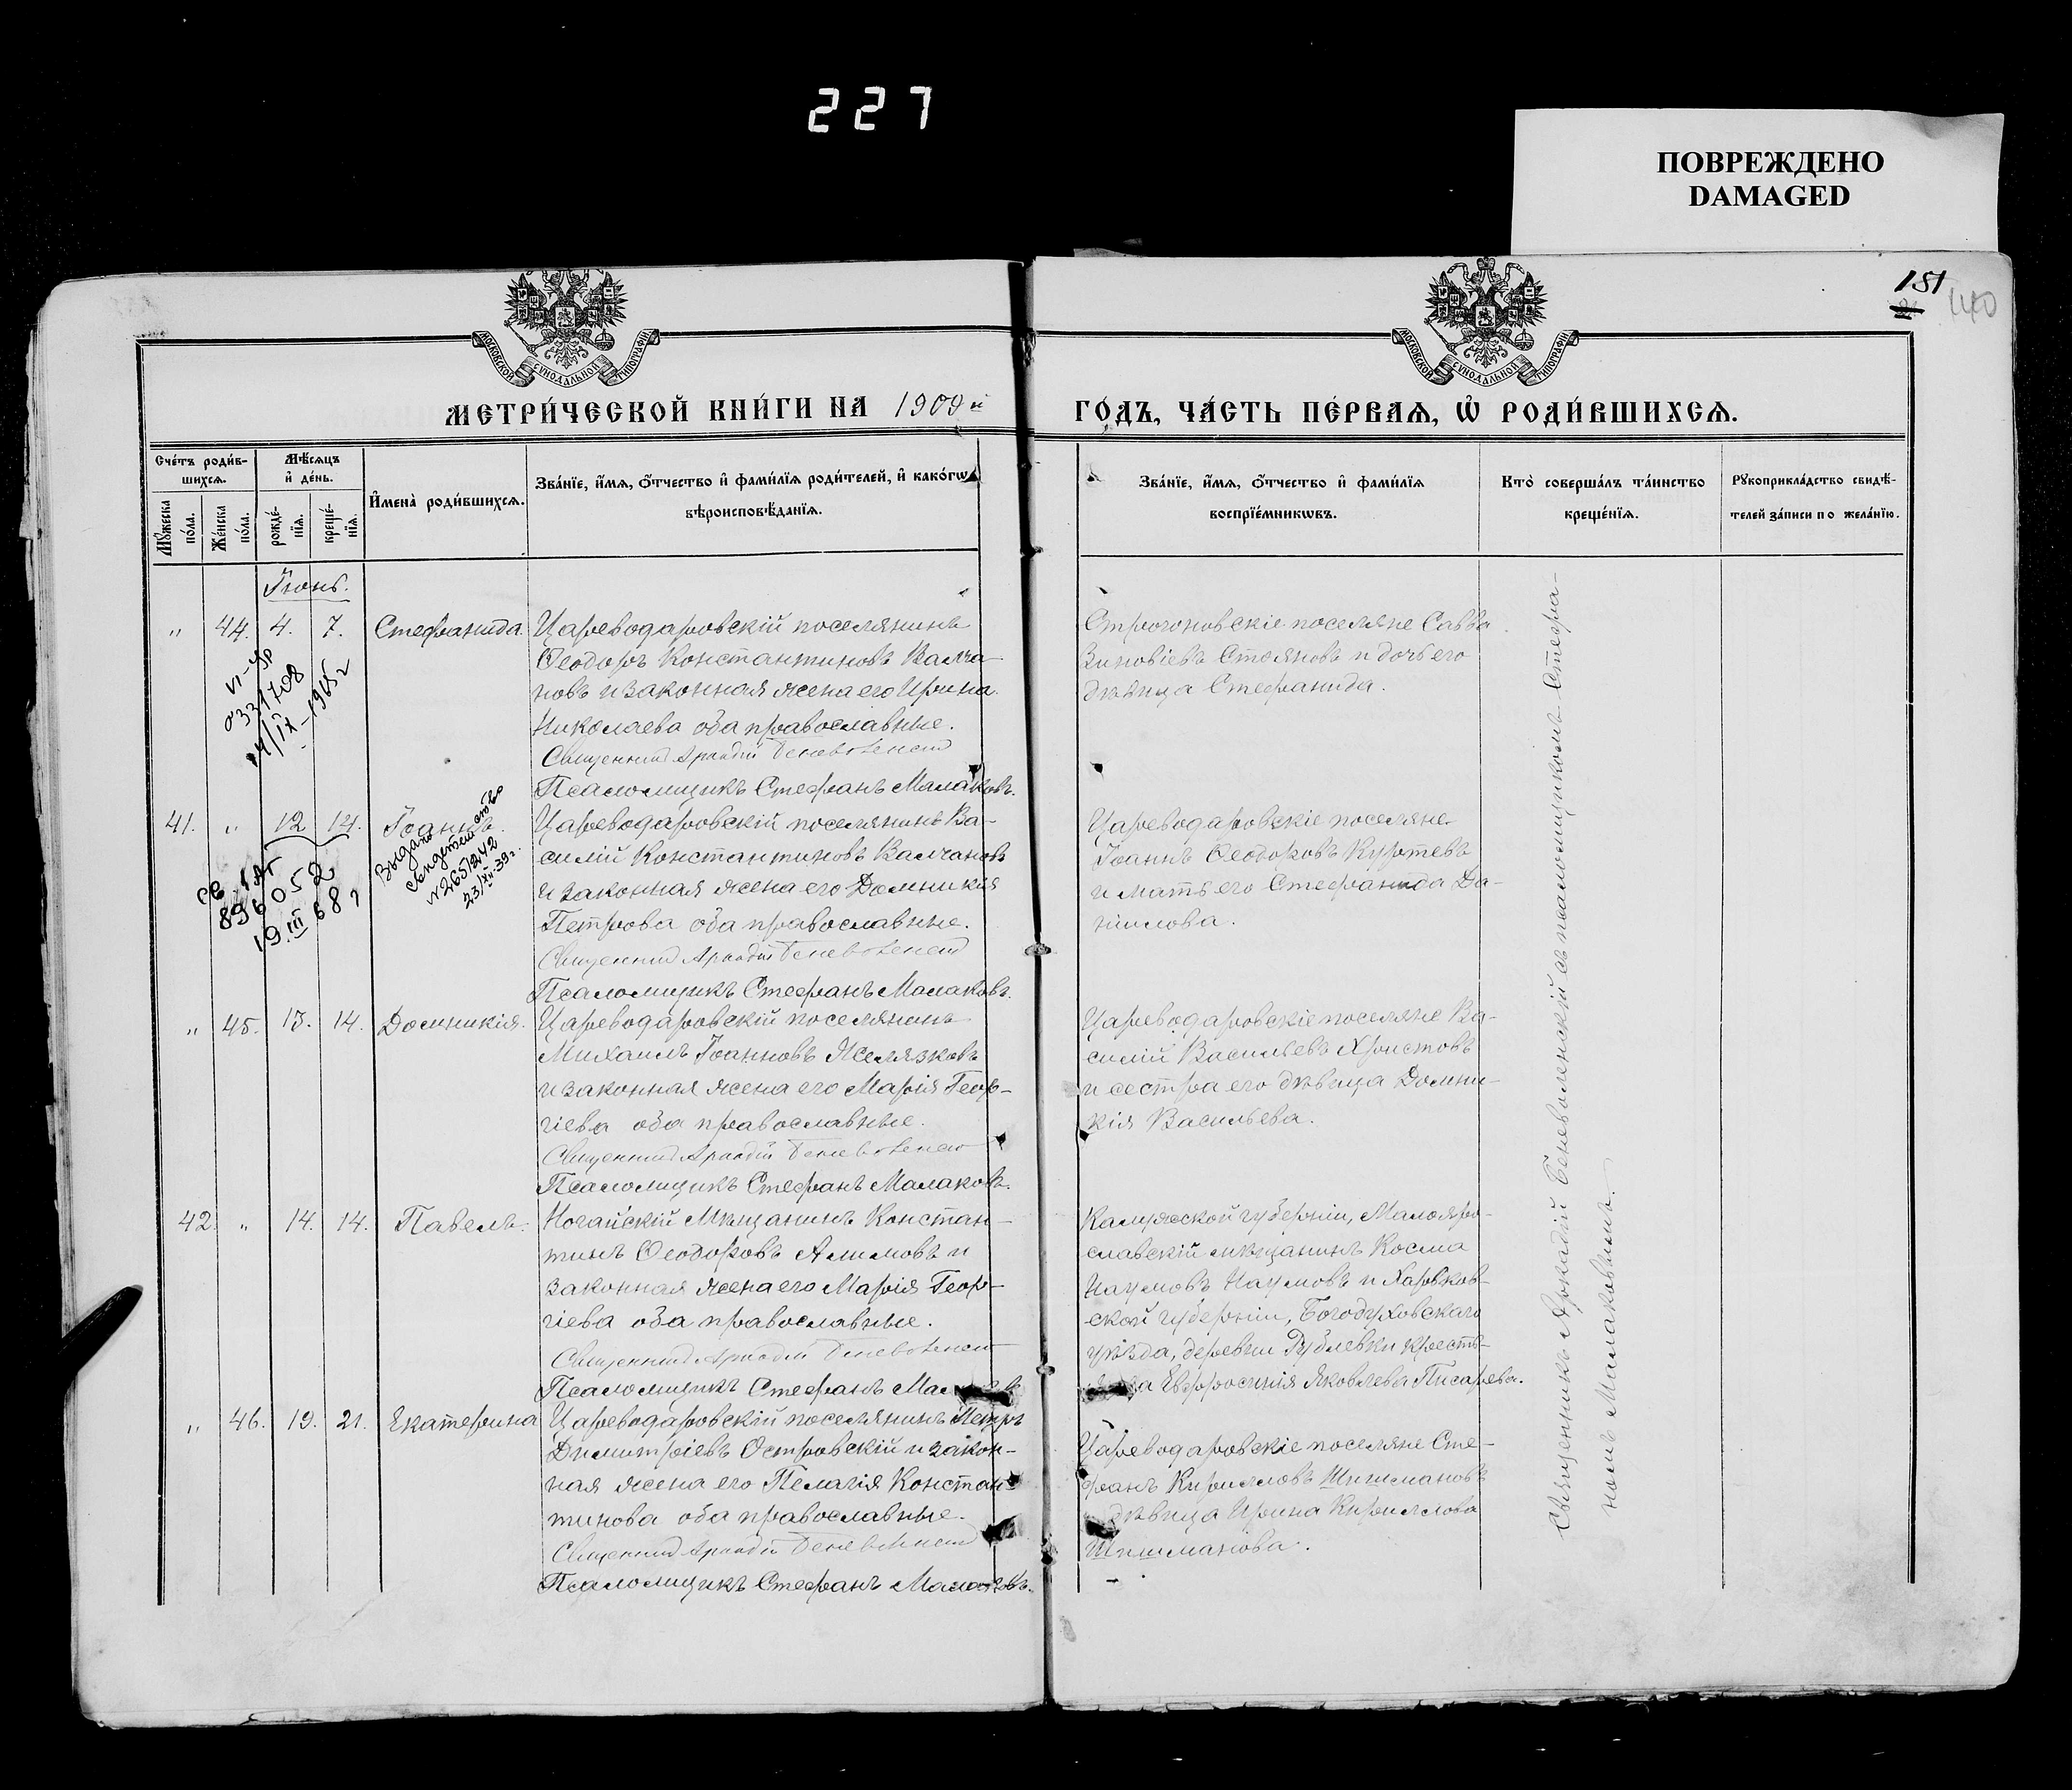 227
ПОВРЕЖДЕНО
DAMAGED
151
140
МОСКОВСКОЙ СѴНОДАЛЬНОЙ ТИПОГРАФІИ
МОСКОВСКОЙ СѴНОДАЛЬНОЙ ТИПОГРАФІИ
МЕТРИ́ЧЕСКОЙ КНИ́ГИ НА 1909й
ГО́ДЪ, ЧА́СТЬ ПЕ́РВАѦ, Ѡ҆ РОДИ́ВШИХСѦ.
Сче́тъ роди́в-
шихсѧ.
Мꙋ́жеска
по́ла.
Же́нска
по́ла.
Мѣ́сѧцъ
и҆ де́нь.
рожде́-
нїѧ.
креще́-
нїѧ.
И҆мена̀ роди́вшихсѧ.
Зва́нїе, и҆́мѧ, ѻ҆́тчество и҆ фами́лїѧ роди́телей, и҆ како́гѡ
вѣроисповѣ́данїѧ.
Зва́нїе, и҆́мѧ, ѻ҆́тчество и҆ фами́лїѧ
воспрїе́мникѡвъ.
Кто̀ соверша́лъ та́инство
креще́нїѧ.
Рꙋкоприкла́дство свидѣ́-
телей за́писи по жела́нїю.
Іюнь.
" 44. 4. 7. Стефанида
Цареводаровскій поселянинъ
Ѳеодоръ Константиновъ Валча-
новъ и законная жена его Ирина
Николаева оба православные.
Священник Аркадій Беневоленский
Псаломщикъ Стефанъ Малаковъ.
Строгоновскіе поселяне Савва
Зиновіевъ Стояновъ и дочь его
дѣвица Стефанида.
VI-УР
331708
14/IX-1965г
41. " 12 14. Іоаннъ.
Цареводаровскій поселянинъ Ва-
силій Константиновъ Валчановъ
и законная жена его Домникія
Петрова оба православные.
Священник Аркадій Беневоленский
Псаломщикъ Стефанъ Малаковъ.
Цареводаровскіе поселяне
Іоаннъ Ѳеодоровъ Куртевъ
и мать его Стефанида Да-
ніилова.
896052
19.III 68 г
Выдано
свидетельство
N 2651242
23/XII-39г.
" 45. 13. 14. Домникія.
Цареводаровскій поселянинъ
Михаилъ Іоанновъ Желязковъ
и законная жена его Марія Геор-
гіева оба православные.
Священник Аркадій Беневоленский
Псаломщикъ Стефанъ Малаковъ.
Цареводаровскіе поселяне Ва-
силій Васильевъ Христовъ
и сестра его дѣвица Домни-
кія Васильева.
42. " 14. 14. Павелъ.
Ногайскій мѣщанинъ Констан-
тинъ Ѳеодоровъ Алимовъ и
законная жена его Марія Геор-
гіева оба православные.
Священник Аркадій Беневоленский
Псаломщикъ Стефанъ
Калужской губерніи, Малояро-
славскій мѣщанинъ Косма
Наумовъ Наумовъ и Харьков-
ской губерніи, Богодуховскаго
уѣзда, деревни Рублевки кресть-
Евфросинія Яковлева Писарева.
" 46. 19. 21. Екатерина
Цареводаровскій поселянинъ Петръ
Димитріевъ Островскій и закон-
ная жена его Пелагія Констан-
тинова оба православные.
Священник Аркадій Беневоленский
Псаломщикъ Стефанъ Малаковъ.
Цареводаровскіе поселяне Сте-
фанъ Кирилловъ Шишмановъ
дѣвица Ирина Кириллова
Шишманова.
Священникъ Аркадій Беневоленскій съ псаломщикомъ Стефа-
номъ Малаковымъ.